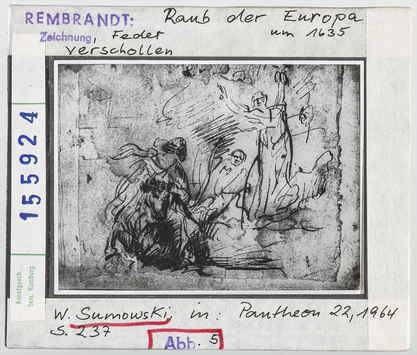 REMBRANDT: Raub der Europa
Zeichnung, Feder um 1635
verschollen
155924
Kunstgesch.
Sem. Hamburg
W. Sumowski, in: Pantheon 22, 1964
S. 237
Abb. 5